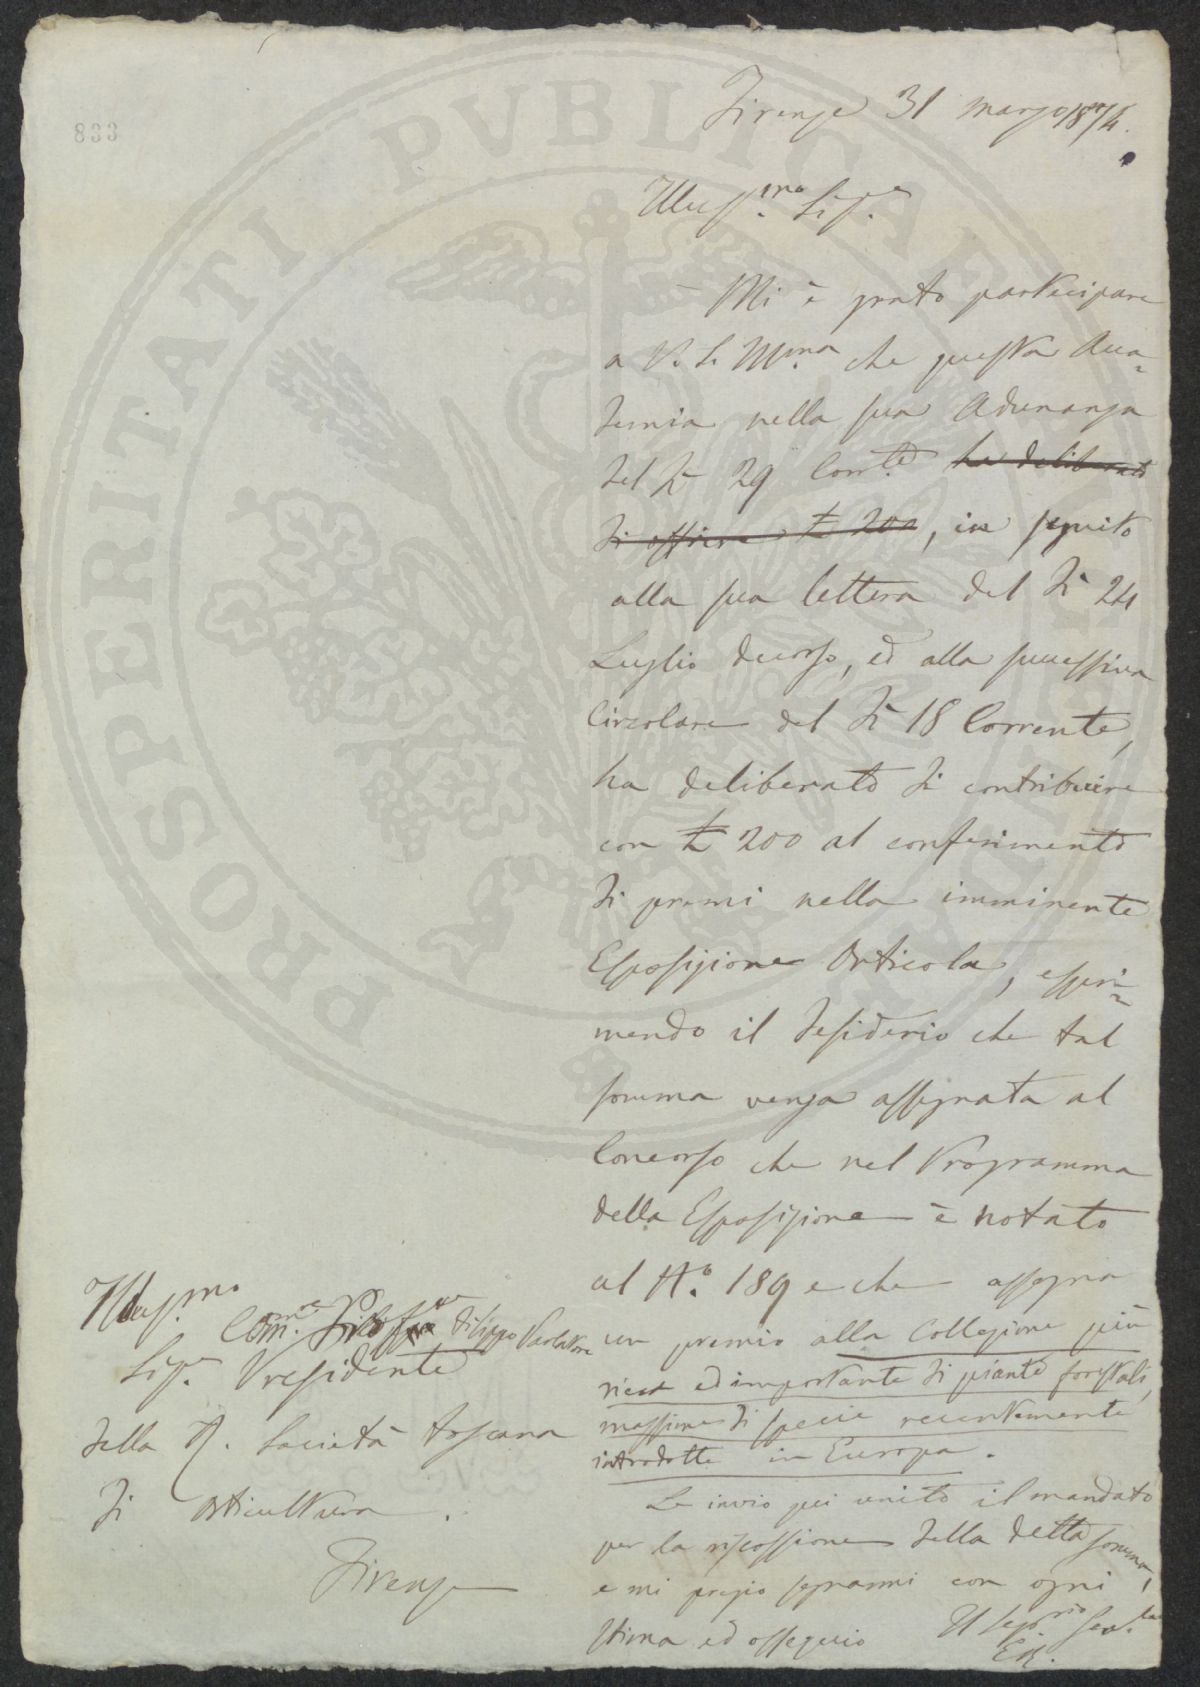 833
PROSPERITATI PVBLICAE
Firenze 31 marzo 1874.
Illus.mo Sig.e
Mi è grato partecipare
a V. S. Ill.ma che questa Acca=
demia nella sua Adunanza
del dì 29 Corr.te ha deliberato
di offrire £ 200, in seguito
alla sua lettera del dì 24
Luglio decorso, ed alla successiva
Circolare del dì 18 Corrente,
ha deliberato di contribuire
con £ 200 al conferimento
di premi nella imminente
Esposizione Orticola, espri=
mendo il desiderio che tal
somma venga assegnata al
Concorso che nel Programma
della Esposizione è notato
al N.o 189 e che assegna
un premio alla Collezione più
ricca ed importante di piante forestali,
massime di specie recentemente
introdotte in Europa.
Le invio qui unito il mandato
per la riscossione della detta somma,
e mi pregio segnarmi con ogni
stima ed ossequio
Il Seg.rio
Illus.mo
Com.re Filippo Parlatore
Sig.e Presidente
della R. Società toscana
di orticultura.
Firenze